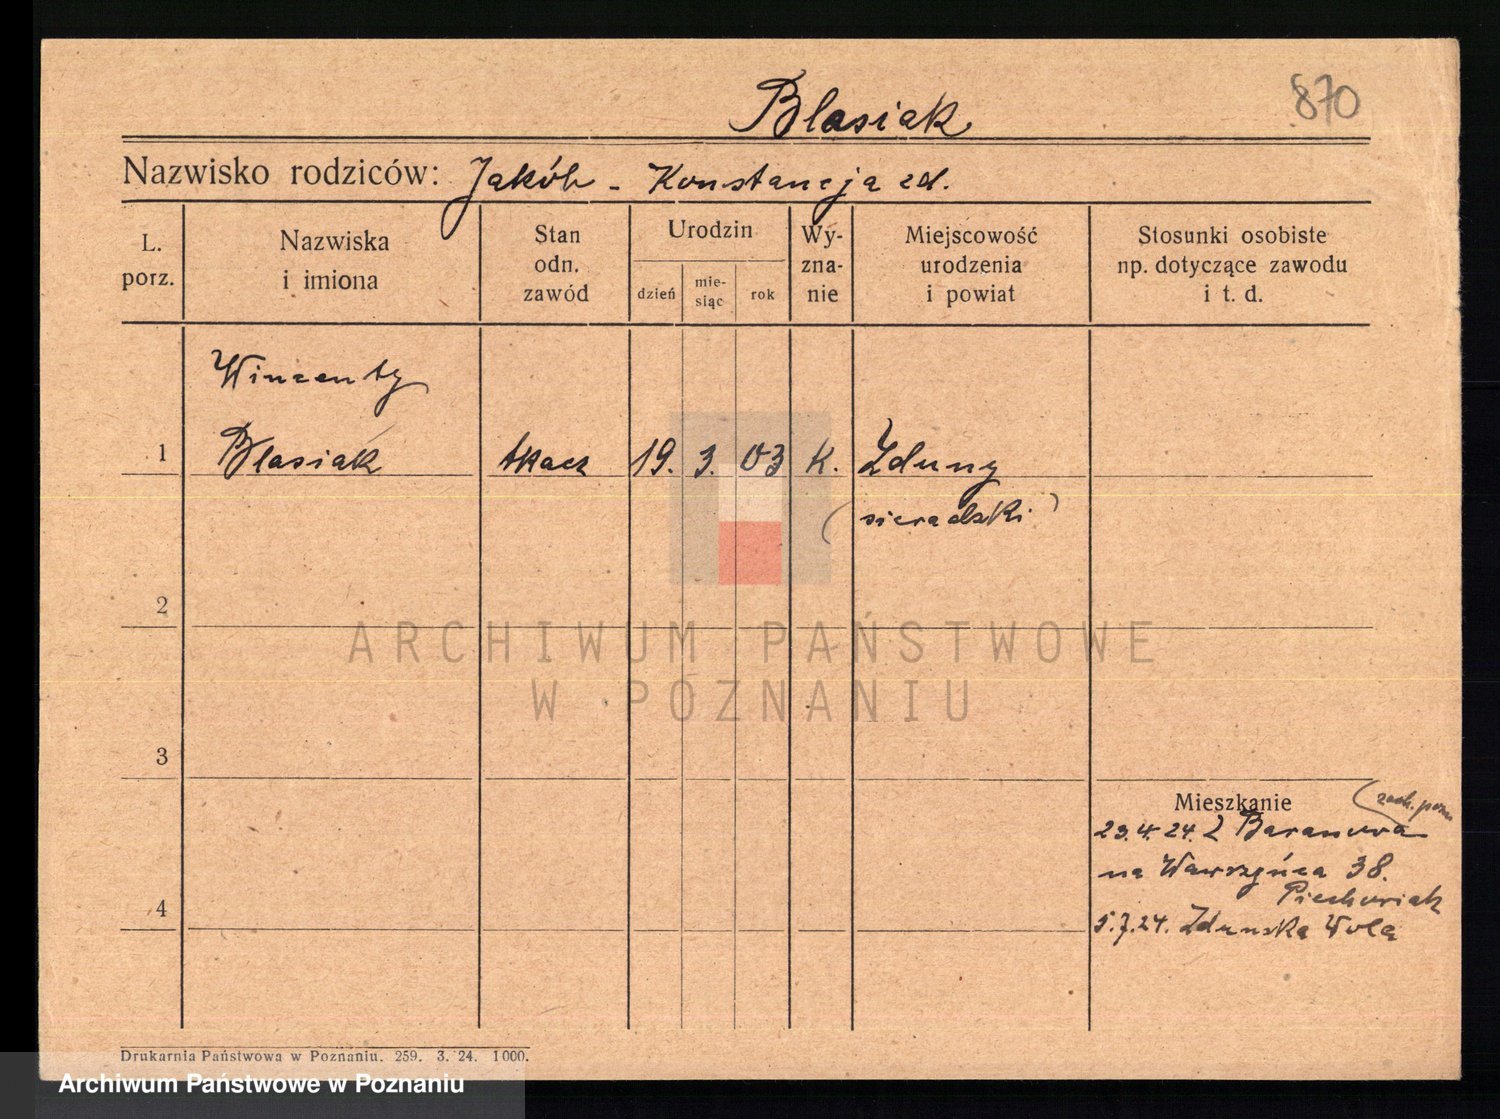 870
Blasiak
Nazwisko rodziców: Jakób - Konstancja zd.
L. porz.
Nazwiska i imiona
Stan odn. zawód
Urodzin
dzień
mie-siąc
rok
Wy-zna-nie
Miejscowość urodzenia i powiat
Stosunki osobiste np. dotyczące zawodu i t. d.
Wincenty
1 Blasiak tkacz 19. 3. 03 K. Zduny
(sieradzki)
2
ARCHIWUM PAŃSTWOWE
W POZNANIU
3
Mieszkanie
23.4.24. Z Baranowa
(zach. pozn.
na Wawrzyńca 38.
Piechowiak
4
5.7.24. Zduńska Wola
Drukarnia Państwowa w Poznaniu. 259. 3. 24. 1000.
Archiwum Państwowe w Poznaniu